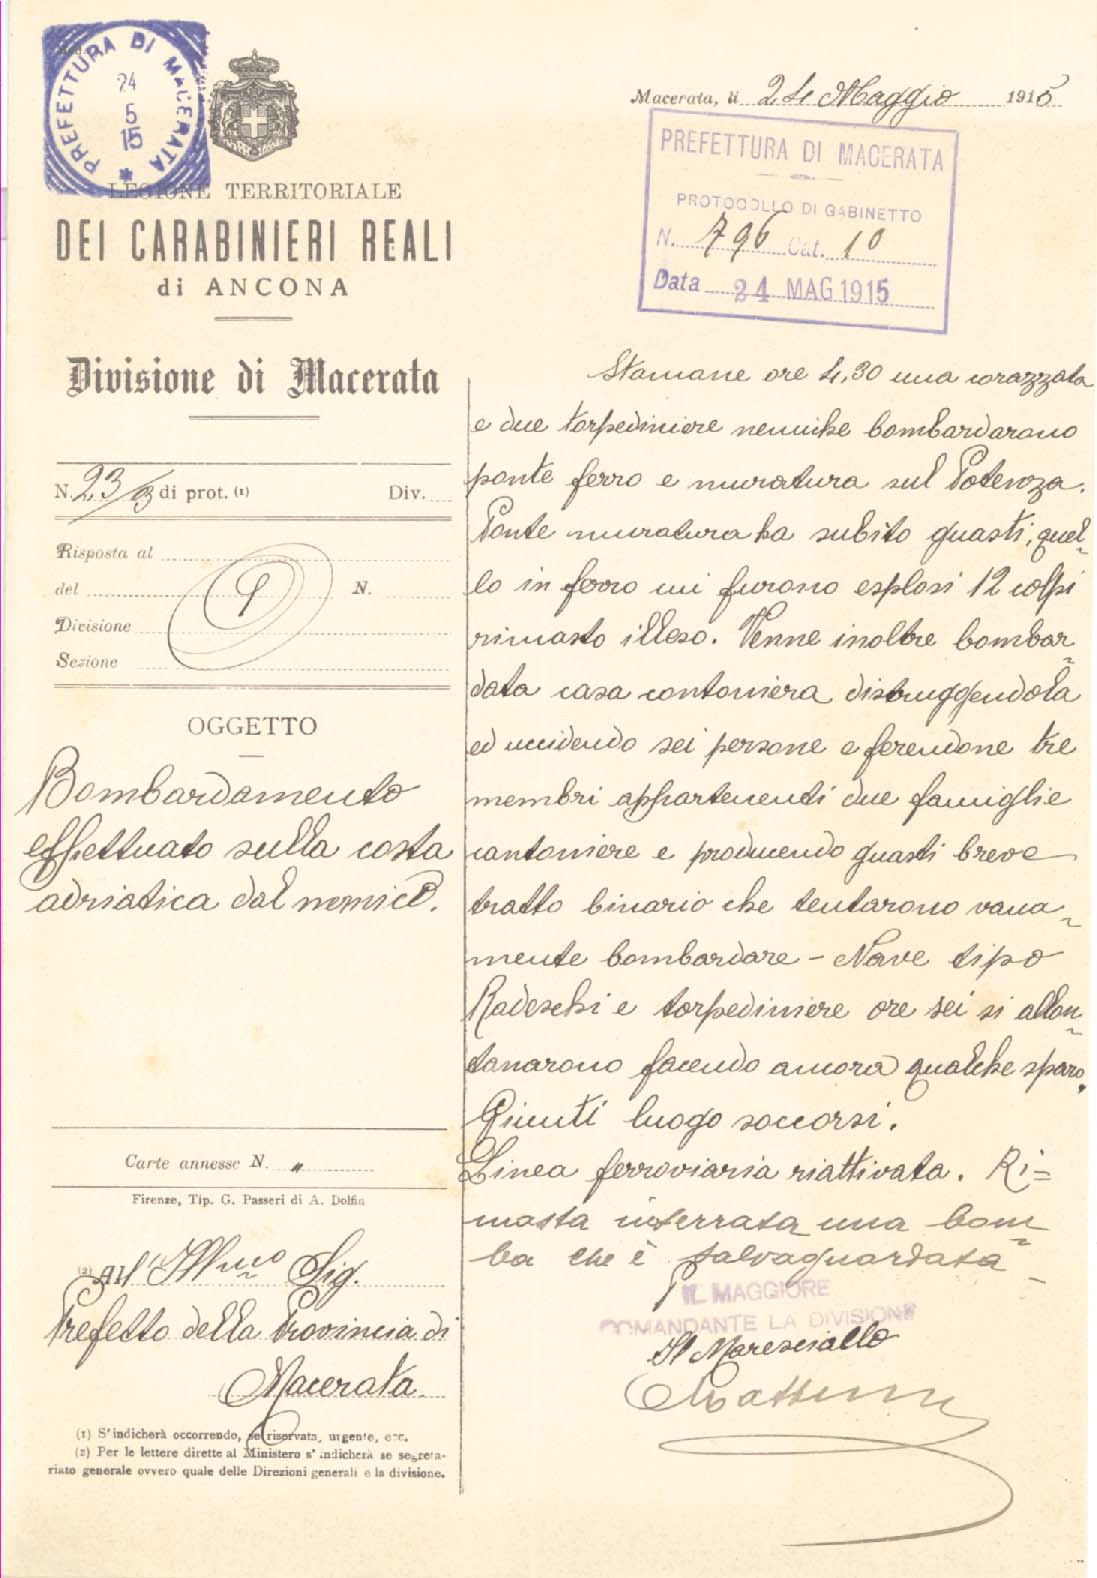 PREFETTURA DI MACERATA
24
5
15
LEGIONE TERRITORIALE
DEI CARABINIERI REALI
di ANCONA
Divisione di Macerata
N. 23/ di prot. (1) Div.
Risposta al
del N.
Divisione
Sezione
OGGETTO
Bombardamento
effettuato sulla costa
adriatica dal nemico.
Carte annesse N. "
Firenze, Tip. G. Passeri di A. Dolfin
(2) All'Ill.mo Sig.
Prefetto della Provincia di
Macerata
(1) S'indicherà occorrendo, se riservata, urgente, ecc.
(2) Per le lettere dirette al Ministero s'indicherà se segreta-
riato generale ovvero quale delle Direzioni generali e la divisione.
Macerata, li 24 Maggio 1915
PREFETTURA DI MACERATA
PROTOCOLLO DI GABINETTO
N. 796 Cat. 10
Data 24 MAG 1915
Stamane ore 4,30 una corazzata
e due torpediniere nemiche bombardarono
ponte ferro e muratura sul Potenza.
Ponte muratura ha subito guasti, quel-
lo in ferro cui furono esplosi 12 colpi
rimasto illeso. Venne inoltre bombar-
data casa cantoniera distruggendola
ed uccidendo sei persone e ferendone tre
membri appartenenti due famiglie
cantoniere e producendo guasti breve
tratto binario che tentarono vana-
mente bombardare - Nave tipo
Radeschi e torpediniere ore sei si allon-
tanarono facendo ancora qualche sparo.
Giunti luogo soccorsi.
Linea ferroviaria riattivata. Ri=
masta interrata una bom-
ba che è salvaguardata
IL MAGGIORE
COMANDANTE LA DIVISIONE
Il Maresciallo